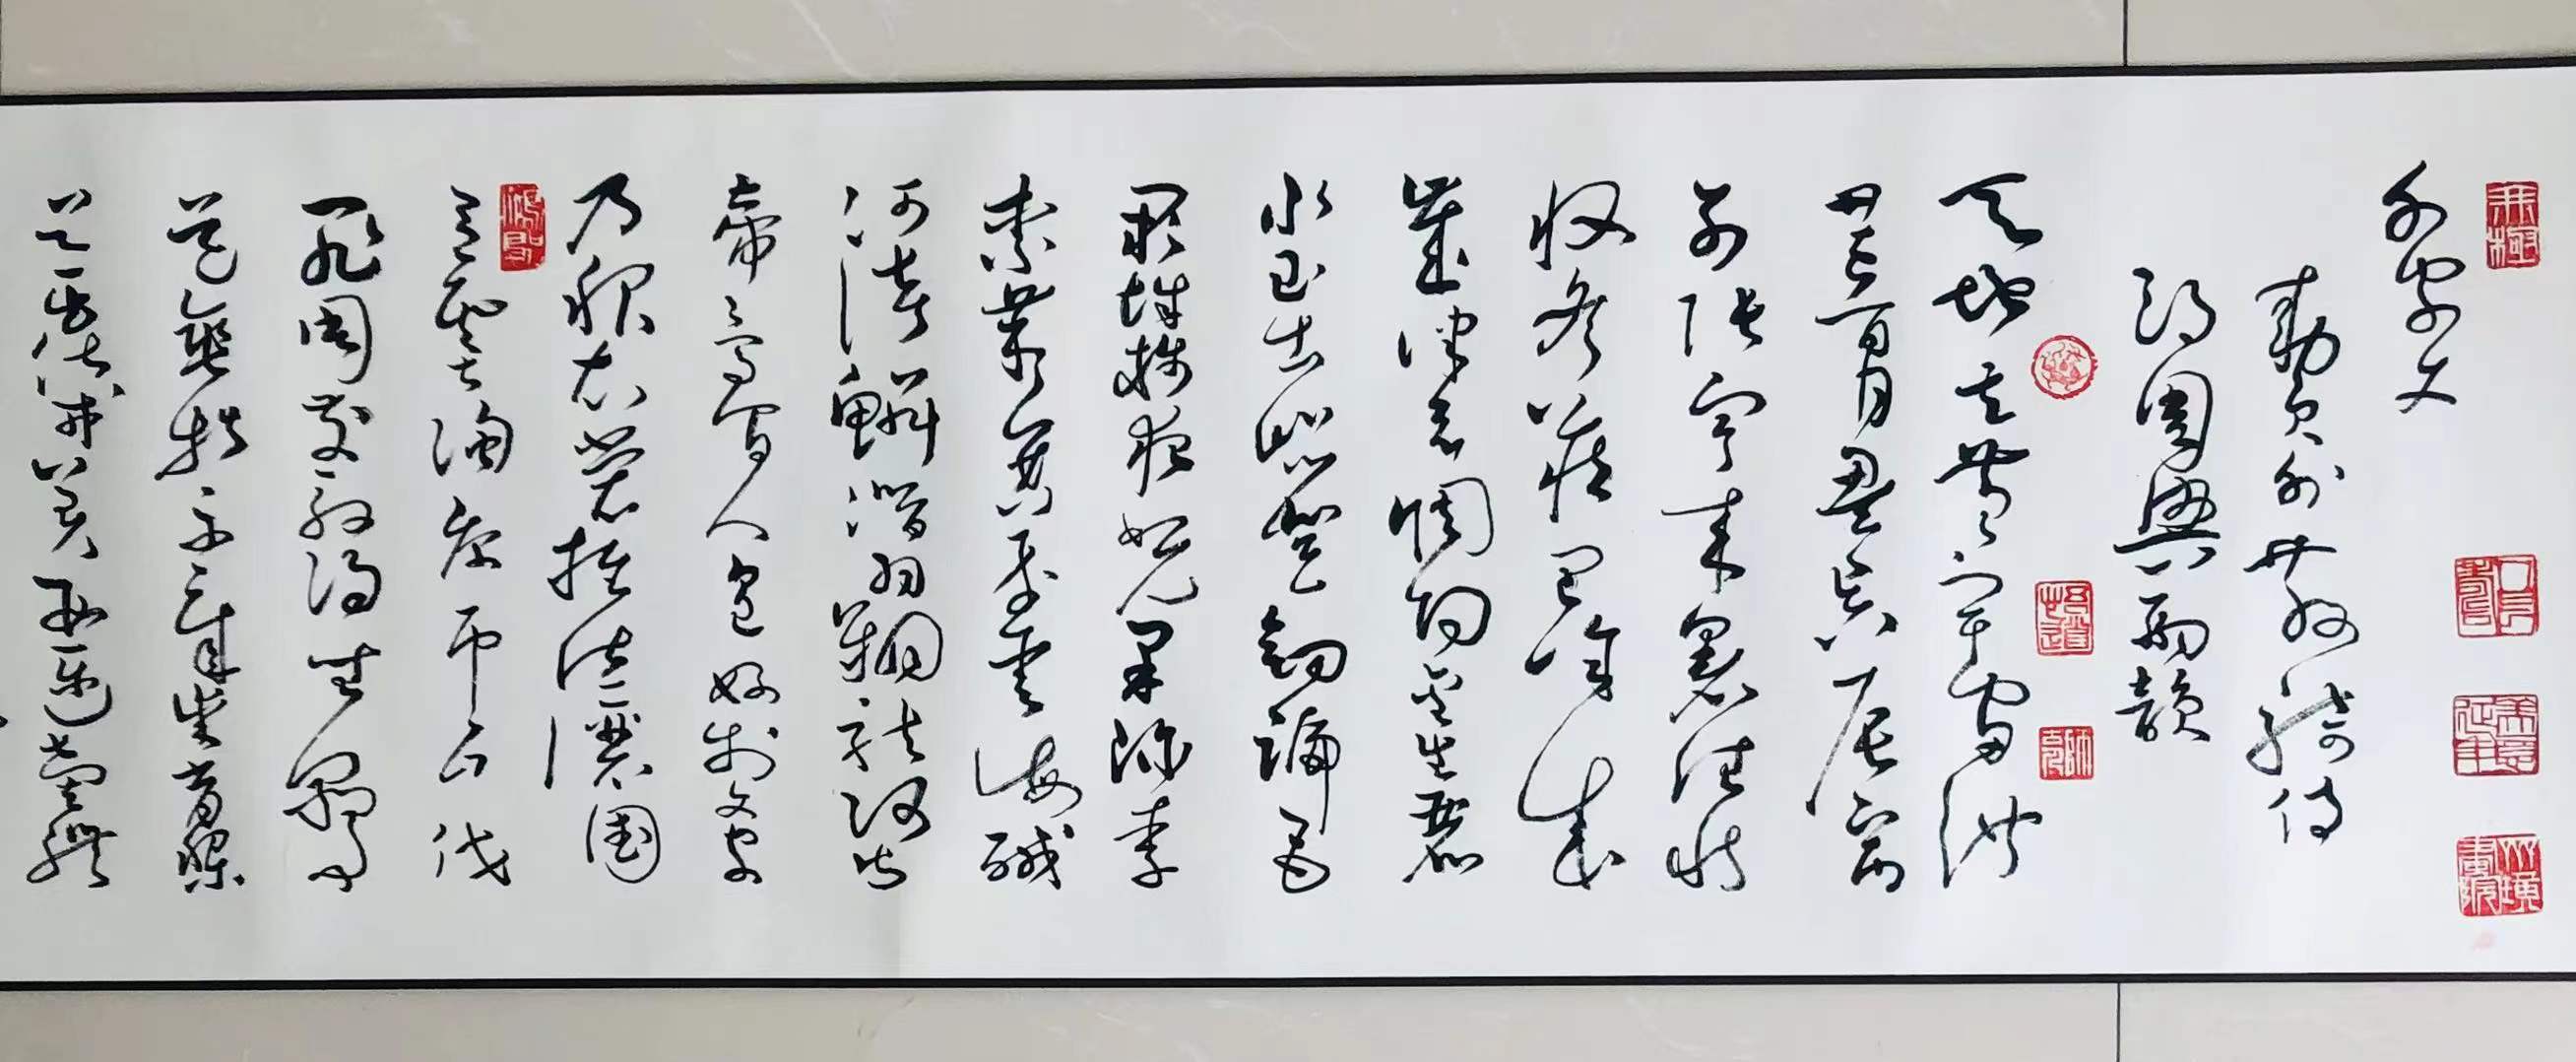 千字文
敕員外散騎侍
郎周興嗣韻
天地玄黃宇宙洪
荒日月盈昃辰宿
列張寒來暑往秋
收冬藏閏餘成
歲律召調陽金生麗
水玉出崑崗劍號巨
闕珠稱夜光菓珍李
柰菜重芥薑海鹹
河淡鱗潛羽翔龍師火
帝鳥官人皇始制文字
乃服衣裳推位讓國
有虞陶唐弔民伐
罪周發殷湯坐朝問
道垂拱平章愛育黎
首臣伏戎羌遐邇壹體